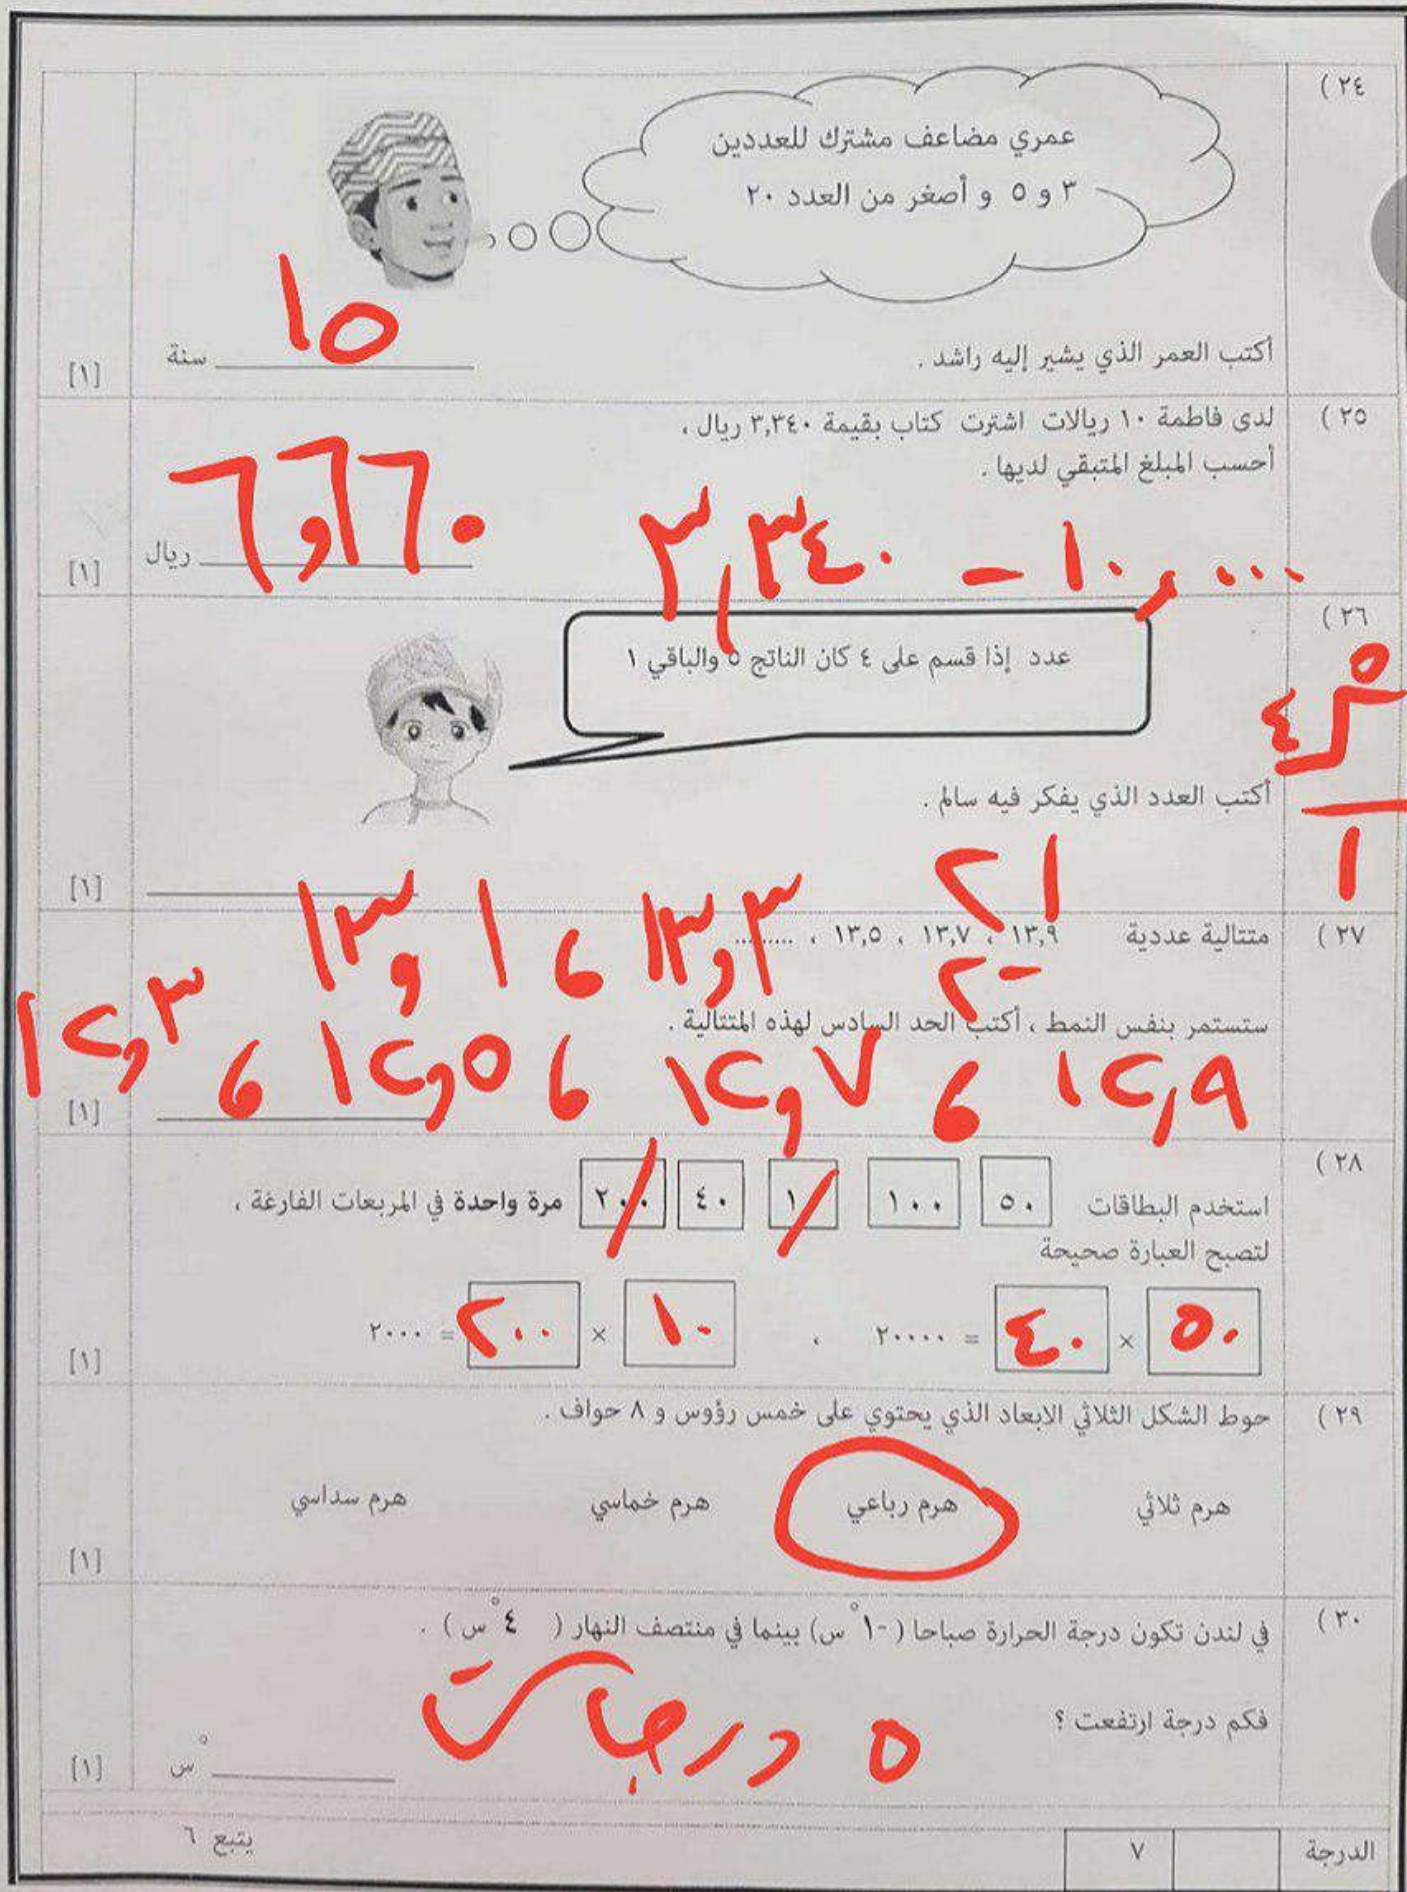 ٢٤ )
عمري مضاعف مشترك للعددين
٣ و ٥ و أصغر من العدد ٢٠
أكتب العمر الذي يشير إليه راشد .
١٥ سنة
[١]
٢٥ )
لدى فاطمة ١٠ ريالات اشترت كتاب بقيمة ٣,٣٤٠ ريال ،
أحسب المبلغ المتبقي لديها .
٣,٣٤٠ - ١٠,٠٠٠
٦,٦٦٠ ريال
[١]
٢٦ )
عدد إذا قسم على ٤ كان الناتج ٥ والباقي ١
٥
٤
١
أكتب العدد الذي يفكر فيه سالم .
٢١
[١]
٢٧ )
متتالية عددية ١٣,٩ ، ١٣,٧ ، ١٣,٥ ، .........
١٣,٣ ، ١٣,١
٢-
ستستمر بنفس النمط ، أكتب الحد السادس لهذه المتتالية .
١٢,٩ ، ١٢,٧ ، ١٢,٥ ، ١٢,٣
[١]
٢٨ )
استخدم البطاقات ٥٠ ١٠٠ ١٠ ٤٠ ٢٠٠ مرة واحدة في المربعات الفارغة ،
لتصبح العبارة صحيحة
٥٠ × ٤٠ = ٢٠٠٠٠ ، ١٠ × ٢٠٠ = ٢٠٠٠
[١]
٢٩ )
حوط الشكل الثلاثي الابعاد الذي يحتوي على خمس رؤوس و ٨ حواف .
هرم ثلاثي هرم رباعي هرم خماسي هرم سداسي
[١]
٣٠ )
في لندن تكون درجة الحرارة صباحا ( -١ °س) بينما في منتصف النهار ( ٤ °س ) .
فكم درجة ارتفعت ؟
٥ درجات
°س
[١]
الدرجة ٧
يتبع ٦